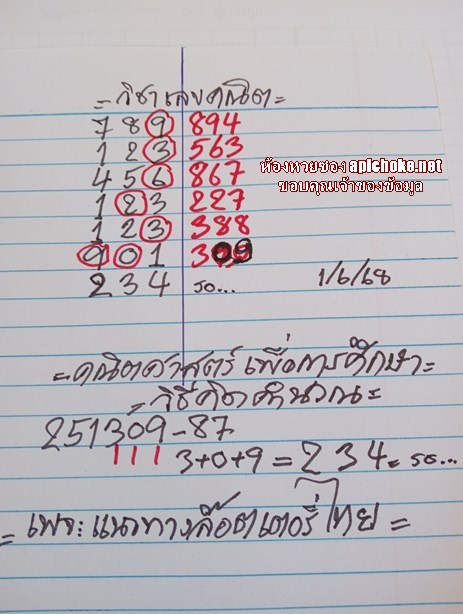 = วิชาเลขคณิต =
7 8 9 894
1 2 3 563
4 5 6 867
1 2 3 227
1 2 3 388
9 0 1 309
2 3 4 รอ...
ห้องหวยซอง apichoke.net
ขอบคุณเจ้าของข้อมูล
1/6/68
= คณิตศาสตร์ เพื่อการศึกษา =
= วิธีคิดคำนวณ =
251309-87
111 3+0+9 = 234 = รอ...
= เพจ: แนวทางล๊อตเตอรี่ไทย =